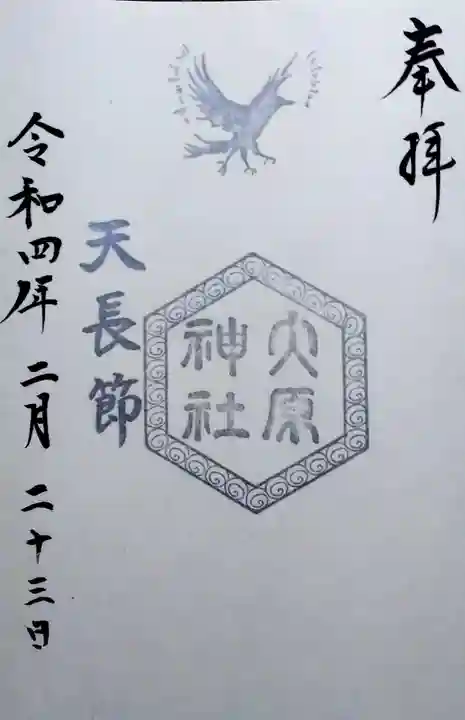 奉拝
大原
神社
天長節
令和四年 二月 二十三日